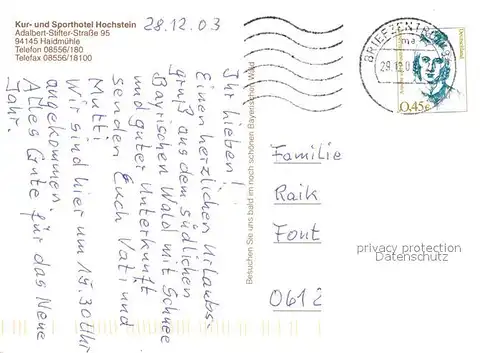 Kur- und Sporthotel Hochstein
Adalbert-Stifter-Straße 95
94145 Haidmühle
Telefon 08556/180
Telefax 08556/18100
28.12.03
Ihr lieben!
Einen herzlichen Urlaubs-
gruß aus dem südlichen
Bayrischen Wald mit Schnee
und guter Unterkunft
senden Euch Vati und
Mutti.
Wir sind hier um 15.30 Uhr
angekommen.
Alles Gute für das Neue
Jahr.
Besuchen Sie uns bald im noch schönen Bayerischen Wald
BRIEFZENTRUM
29.12.0
Deutschland
0,45€
Familie
Raik
Font
0612
privacy protection
Datenschutz